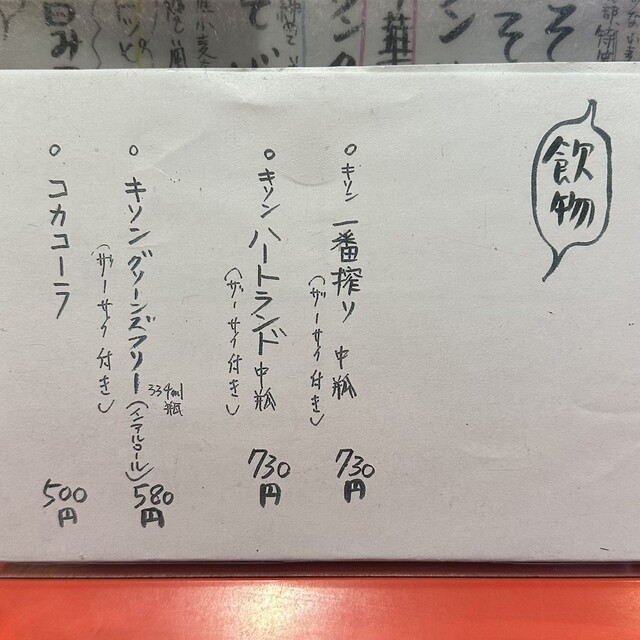 飲物
○ キリン 一番搾り 中瓶 730円
(ザーサイ付き)
○ キリン ハートランド 中瓶 730円
(ザーサイ付き)
○ キリン グリーンズフリー 334ml瓶 (ノンアルコール) 580円
(ザーサイ付き)
○ コカコーラ 500円